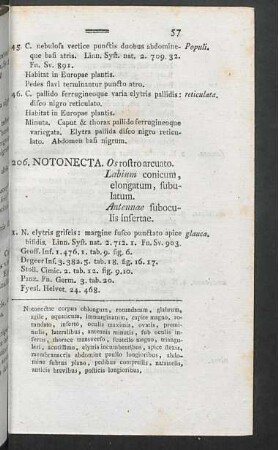 57
45. C. nebulosa vertice punctis duobus abdomine- Populi.
que basi atris. Linn. Syst. nat. 2. 709. 32.
Fn. Sv. 891.
Habitat in Europae plantis.
Pedes flavi terminantur puncto atro.
46. C. pallido ferrugineoque varia elytris pallidis: reticulata.
disco nigro reticulato.
Habitat in Europae plantis.
Minuta. Caput & thorax pallido ferrugineoque
variegata. Elytra pallida disco nigro reticu-
lato. Abdomen basi nigrum.
206. NOTONECTA. Os rostro arcuato.
Labium conicum,
elongatum, subu-
latum.
Antennae suboculis
insertae.
1. N. elytris griseis: margine fusco punctato apice glauca.
bifidis. Linn. Syst. nat. 2. 712. 1. Fn. Sv. 903.
Geoff. Inf. 1. 476. 1. tab. 9. fig. 6.
Degeer Inf. 3. 382. 5. tab. 18. fig. 16. 17.
Stoll. Cimic. 2. tab. 12. fig. 9. 10.
Panz. Fn. Germ. 3. tab. 20.
Fyesl. Helvet. 24. 468.
Notonectae corpus oblongum, rotundatum, glabrum,
agile, aquaticum, immarginatum, capite magno, ro-
tundato, inserto, oculis maximis, ovatis, promi-
nulis, lateralibus, antennis minutis, sub oculis in-
sertis, thorace transverso, scutello magno, triangu-
lari, acutissimo, elytris incumbentibus, apice
membranaceis abdomine paullo longioribus, abdo-
mine subtus plano, pedibus compressis, natatoriis,
anticis brevibus, posticis longioribus.